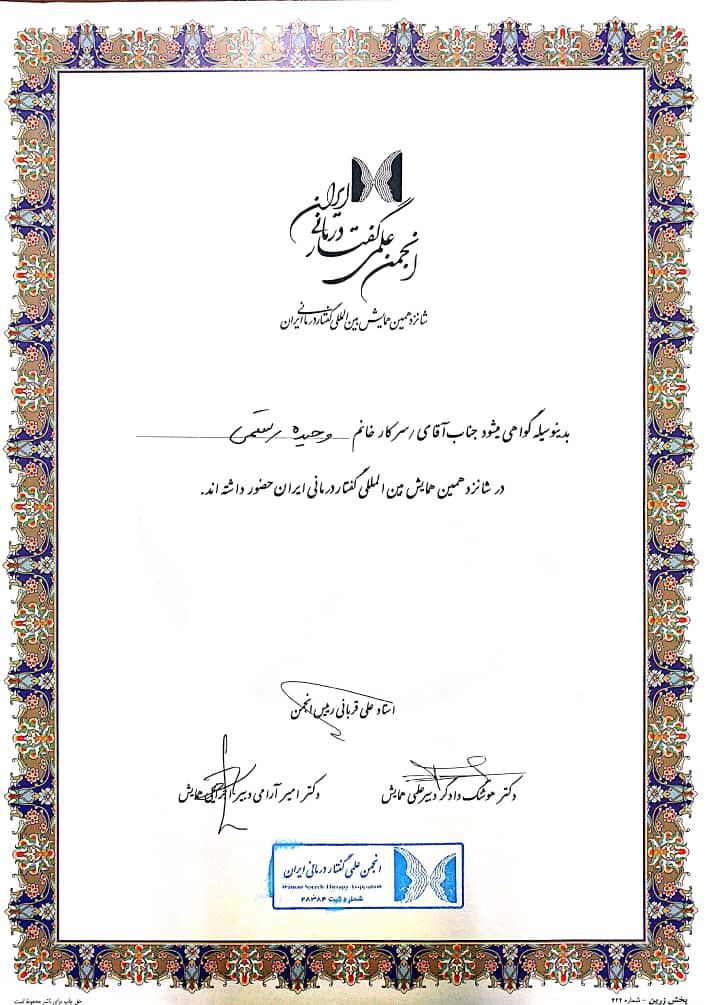 انجمن علمی گفتار درمانی ایران
شانزدهمین همایش بین المللی گفتاردرمانی ایران
بدینوسیله گواهی میشود جناب آقای / سرکار خانم وحیده رستمی
در شانزدهمین همایش بین المللی گفتاردرمانی ایران حضور داشته اند.
استاد علی قربانی رییس انجمن
دکتر هوشنگ دادگر دبیر علمی همایش
دکتر امیر آرامی دبیر اجرایی همایش
انجمن علمی گفتار درمانی ایران
Iranian Speech Therapy Association
شماره ثبت ۲۸۳۸۴
پخش زرین - شماره ۴۲۲
حق چاپ برای ناشر محفوظ است